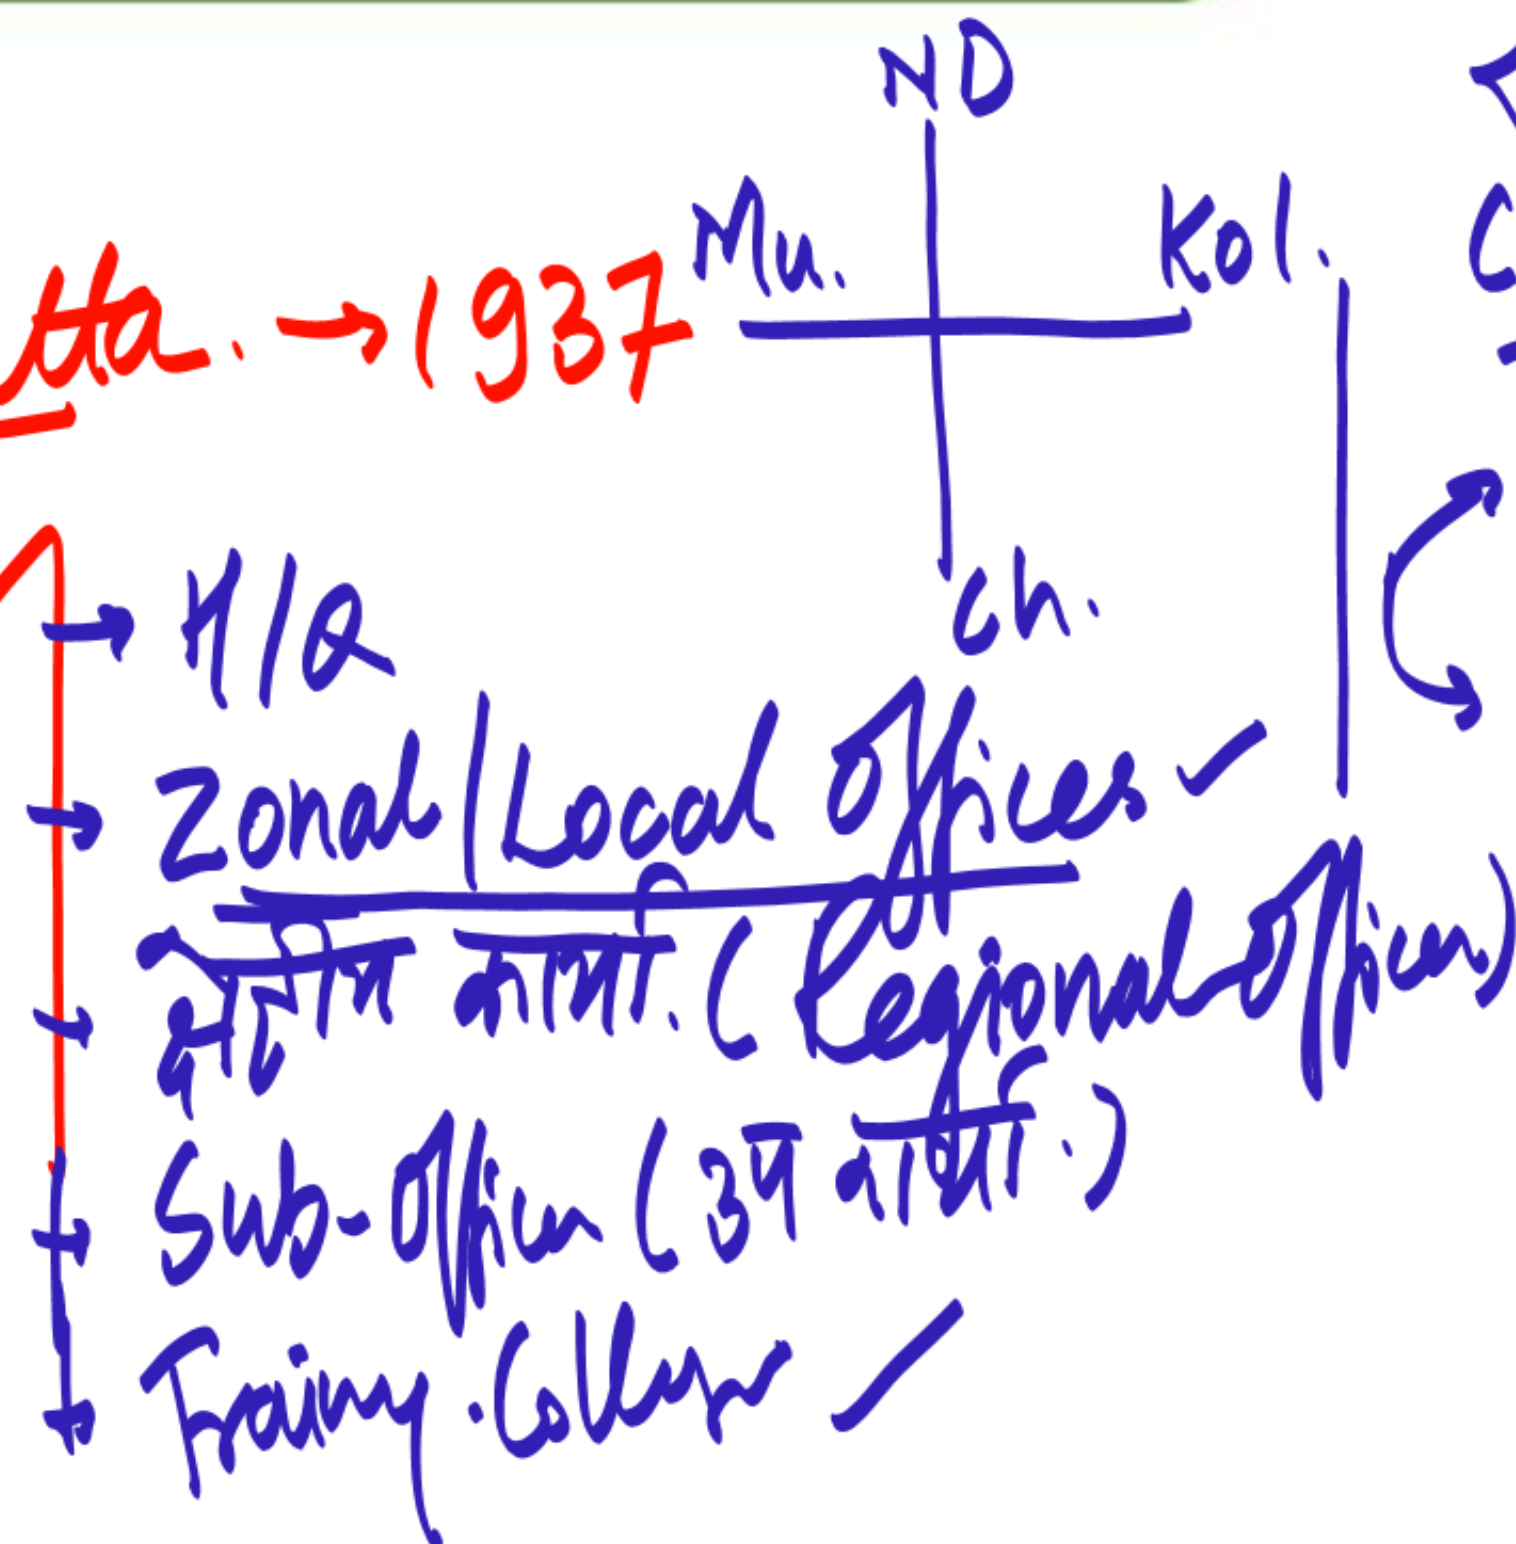 ND
Mu. Kol.
tta. → 1937
Ch.
→ H/Q
→ Zonal/Local Offices ✓
→ क्षेत्रीय कार्या. (Regional Offices)
→ Sub-Offices (उप कार्या.)
→ Training College ✓